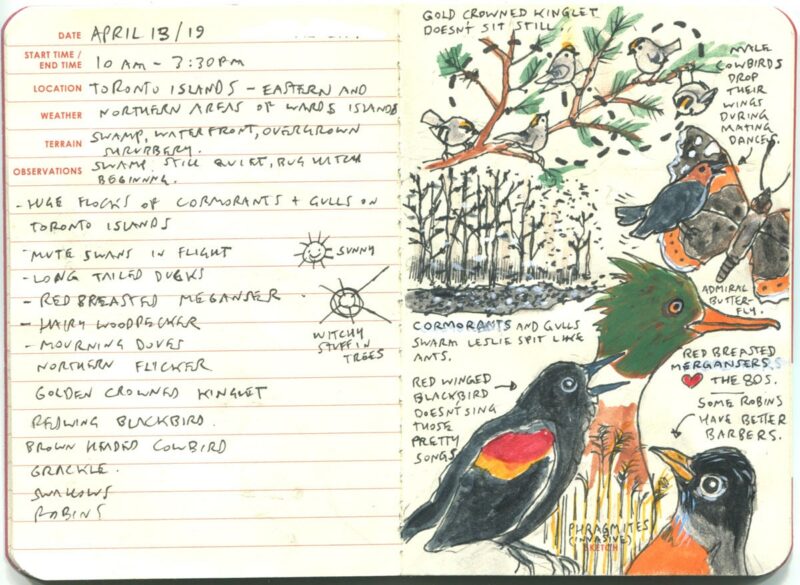 DATE APRIL 13/19
START TIME / END TIME 10 AM - 3:30PM
LOCATION TORONTO ISLANDS - EASTERN AND
WEATHER NORTHERN AREAS OF WARDS ISLANDS
TERRAIN SWAMP, WATERFRONT, OVERGROWN
SHRUBBERY.
OBSERVATIONS SWAMP STILL QUIET, BUG HITCH
BEGINNNG.
- HUGE FLOCKS OF CORMORANTS + GULLS ON
TORONTO ISLANDS
- MUTE SWANS IN FLIGHT
- LONG TAILED DUCKS
- RED BREASTED MEGANSER
- HAIRY WOODPECKER
- MOURNING DOVES
NORTHERN FLICKER
GOLDEN CROWNED KINGLET
REDWING BLACKBIRD.
BROWN HEADED COWBIRD
GRACKLE.
SWALLOWS
ROBINS
SUNNY
WITCHY
STUFF IN
TREES
GOLD CROWNED KINGLET
DOESN'T SIT STILL.
MALE
COWBIRDS
DROP
THEIR
WINGS
DURING
MATING
DANCES.
ADMIRAL
BUTTER-
FLY.
CORMORANTS AND GULLS
SWARM LESLIE SPIT LIKE
ANTS.
RED BREASTED
MERGANSERS
❤ THE 80S.
RED WINGED
BLACKBIRD
DOESN'T SING
THOSE
PRETTY
SONGS
SOME ROBINS
HAVE BETTER
BARBERS.
PHRAGMITES
(INVASIVE)
SKETCH